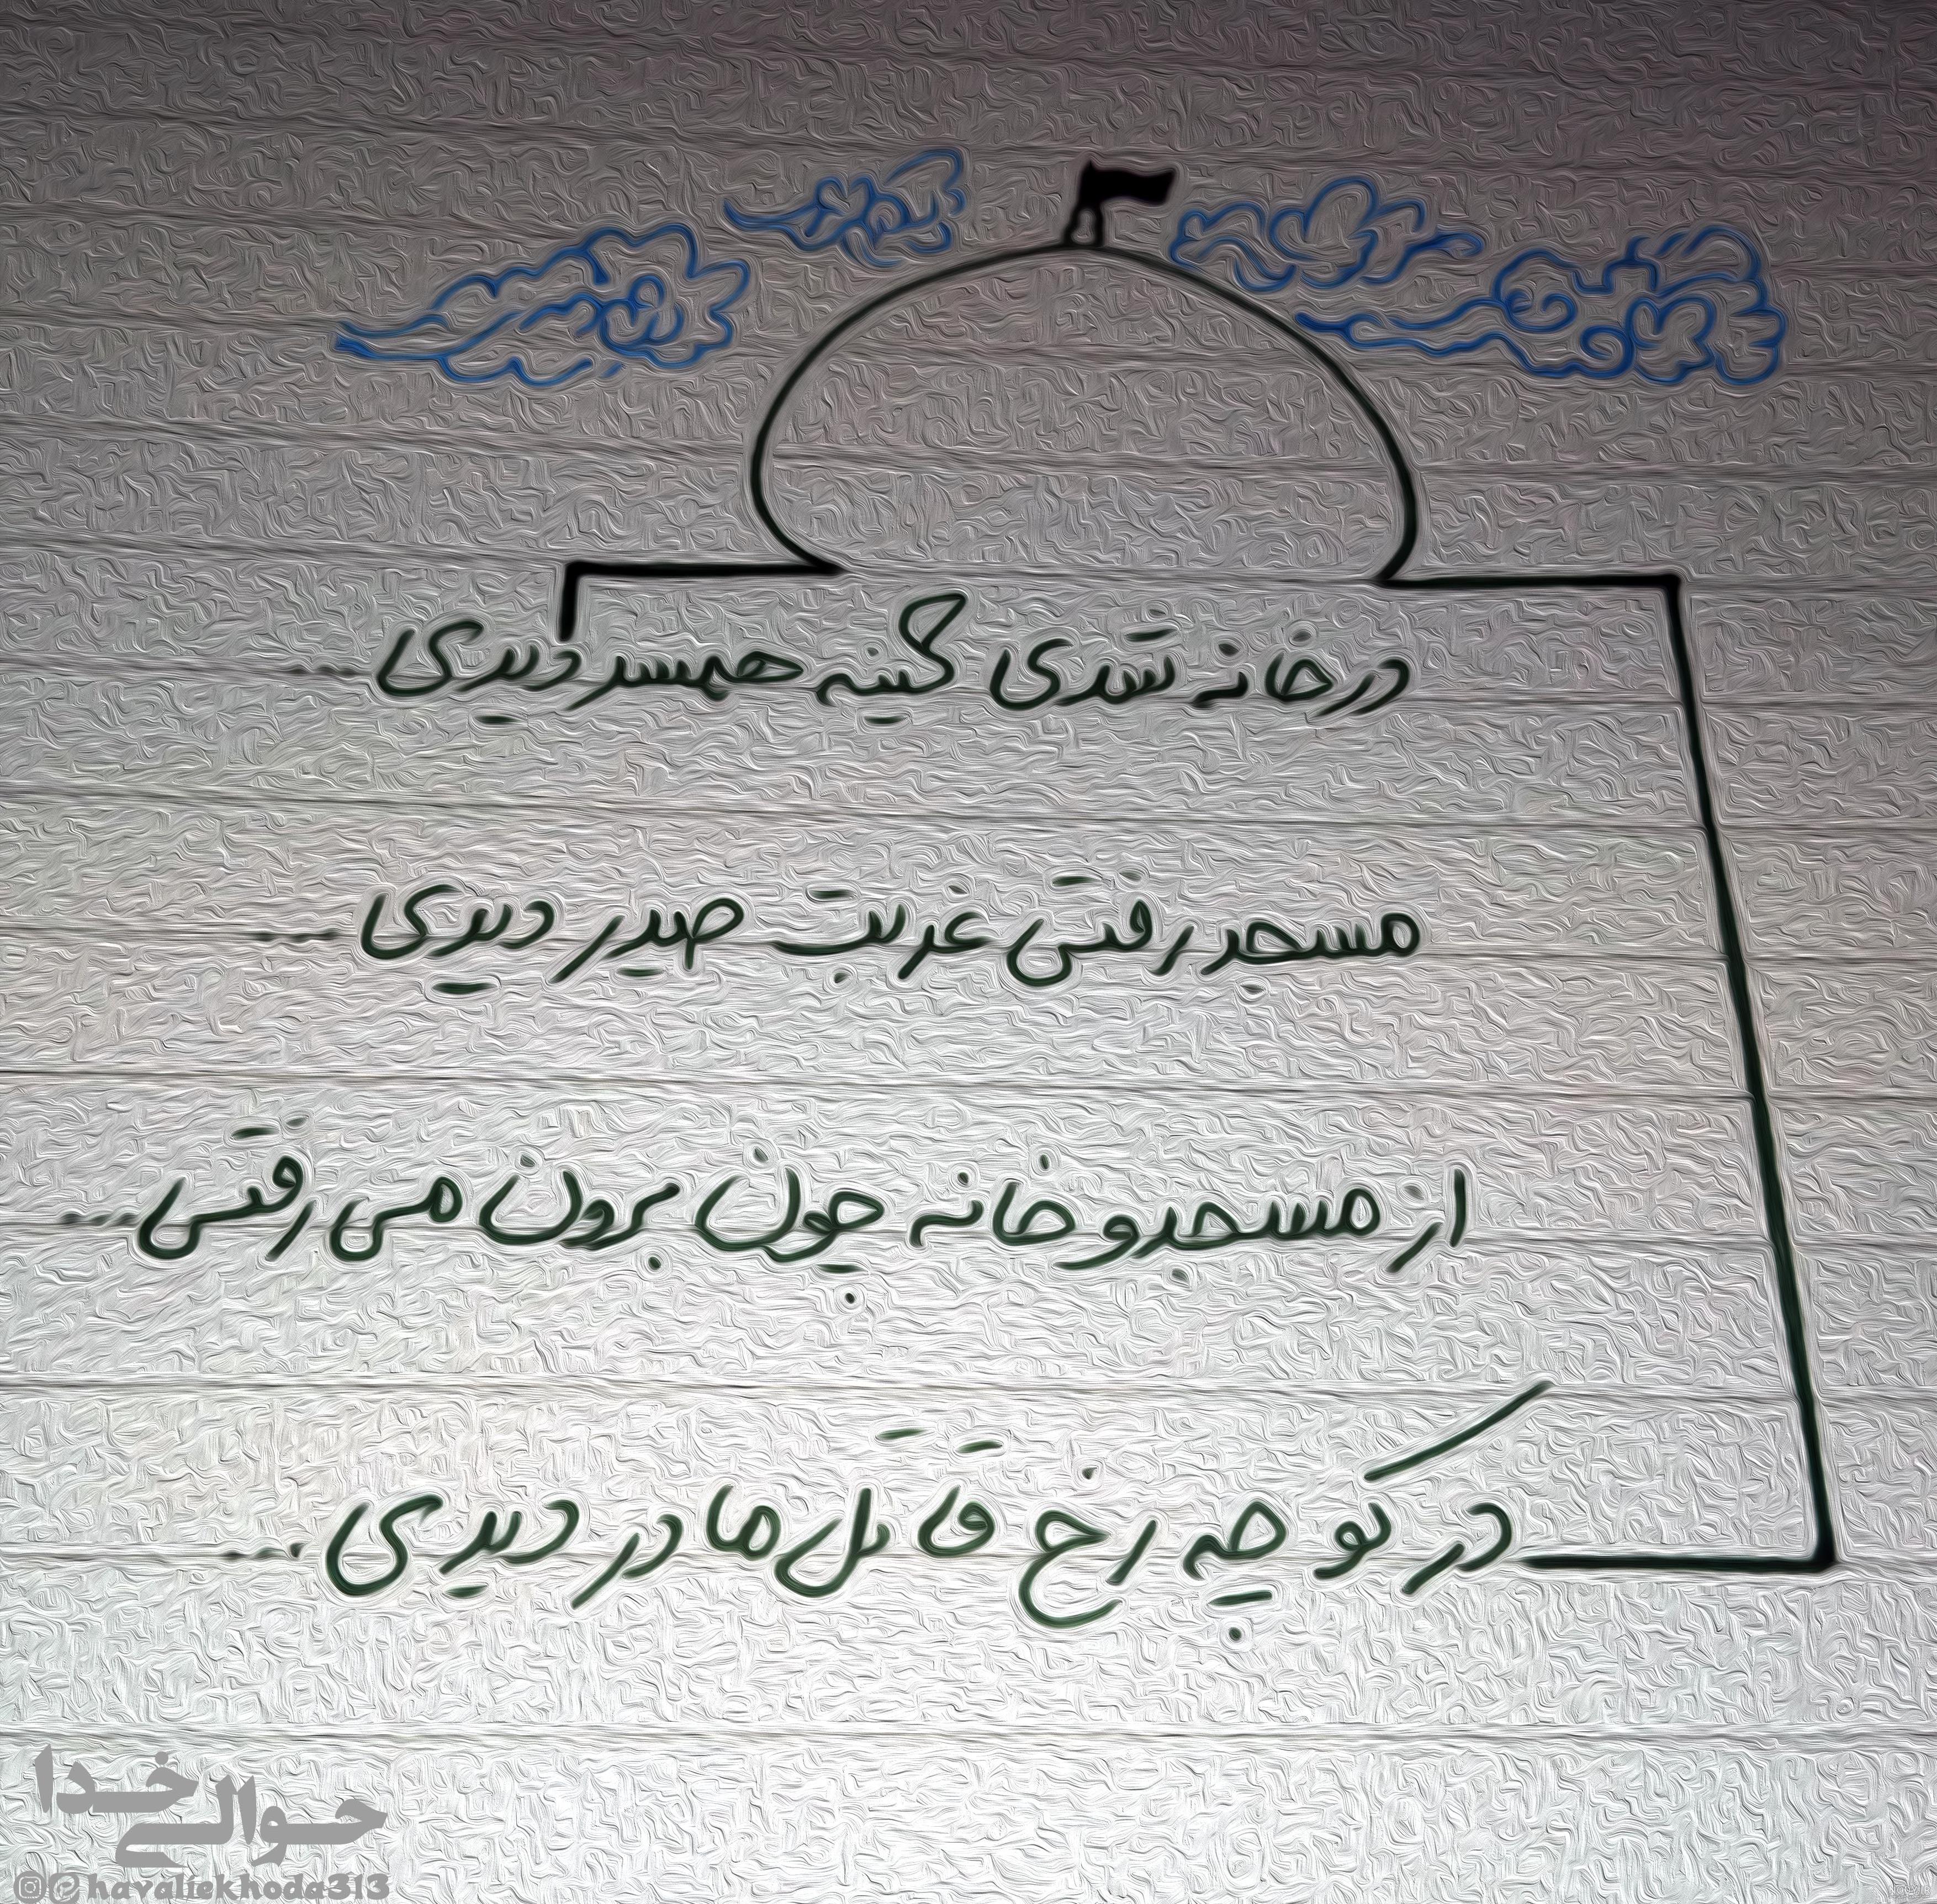 در خانه شدی کینه همسر دیدی...
مسجد رفتی غربت حیدر دیدی...
از مسجد و خانه چون برون می رفتی...
در کوچه رخ قاتل مادر دیدی...
حوالے خدا
@havaliekhoda313